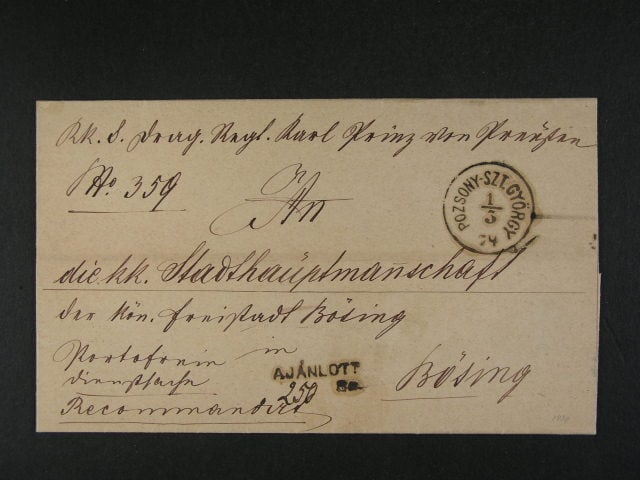 K.k. 8. Drag. Regt. Karl Prinz von Preußen
No. 359
An
POZSONY-SZT.GYÖRGY
1/3
74
die kk. Stadthauptmannschaft
der kön. Freistadt Bösing
in
Portofreie
Dienstsache
Recommandirt
AJÁNLOTT
250
Bösing